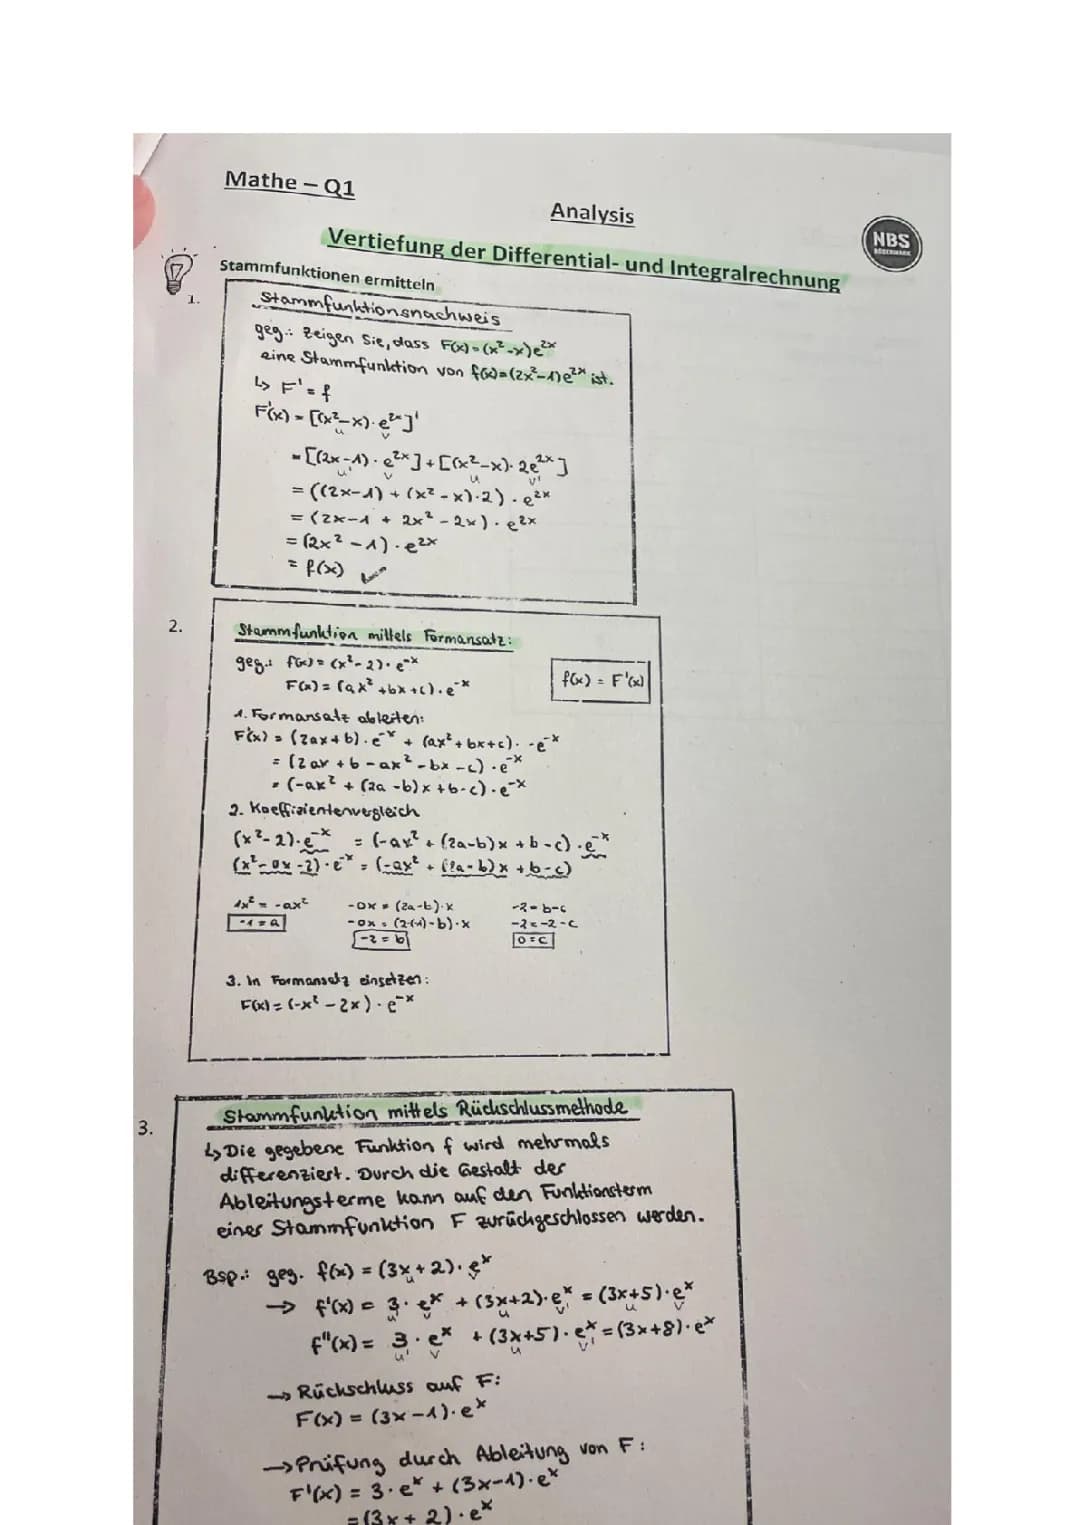 Mathe – Q1
Analysis
NBS
Vertiefung der Differential- und Integralrechnung
Stammfunktionen ermitteln
1.
Stammfunktionsnachweis
geg.: Zeigen Sie, dass F(x)=(x²-x)e²ˣ
eine Stammfunktion von f(x)=(2x²-1)e²ˣ ist.
↳ F' = f
F'(x) = [(x²-x)·e²ˣ]'
u v
= [(2x-1)·e²ˣ] + [(x²-x)·2e²ˣ]
u' v u v'
= ((2x-1) + (x²-x)·2)·e²ˣ
= (2x-1 + 2x² - 2x)·e²ˣ
= (2x² - 1)·e²ˣ
= f(x) ✓
2.
Stammfunktion mittels Formansatz:
geg.: f(x) = (x²-2)·e⁻ˣ
F(x) = (ax²+bx+c)·e⁻ˣ
f(x) = F'(x)
1. Formansatz ableiten:
F'(x) = (2ax+b)·e⁻ˣ + (ax²+bx+c)·-e⁻ˣ
= (2ax + b - ax² - bx - c)·e⁻ˣ
= (-ax² + (2a-b)x + b-c)·e⁻ˣ
2. Koeffizientenvergleich
(x²-2)·e⁻ˣ = (-ax² + (2a-b)x + b-c)·e⁻ˣ
(x²-0x-2)·e⁻ˣ = (-ax² + (2a-b)x + b-c)
1x² = -ax² -0x = (2a-b)·x -2 = b-c
-1 = a -0x = (2·(-1)-b)·x -2 = -2-c
-2 = b 0 = c
3. In Formansatz einsetzen:
F(x) = (-x² - 2x)·e⁻ˣ
3.
Stammfunktion mittels Rückschlussmethode
↳ Die gegebene Funktion f wird mehrmals
differenziert. Durch die Gestalt der
Ableitungsterme kann auf den Funktionsterm
einer Stammfunktion F zurückgeschlossen werden.
Bsp.: geg. f(x) = (3x+2)·eˣ
u v
→ f'(x) = 3·eˣ + (3x+2)·eˣ = (3x+5)·eˣ
u' v u v' u v
f''(x) = 3·eˣ + (3x+5)·eˣ = (3x+8)·eˣ
u' v u v'
→ Rückschluss auf F:
F(x) = (3x-1)·eˣ
→ Prüfung durch Ableitung von F:
F'(x) = 3·eˣ + (3x-1)·eˣ
= (3x + 2)·eˣ